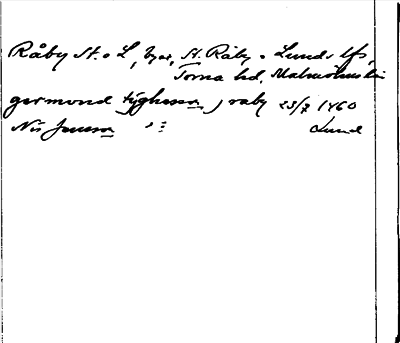 Råby St. o L, byar, St. Råby o Lunds lfs,
Torna hd, Malmöhus län
germond tyghesson j raby 23/7 1460
Nis Jensson " : Lund